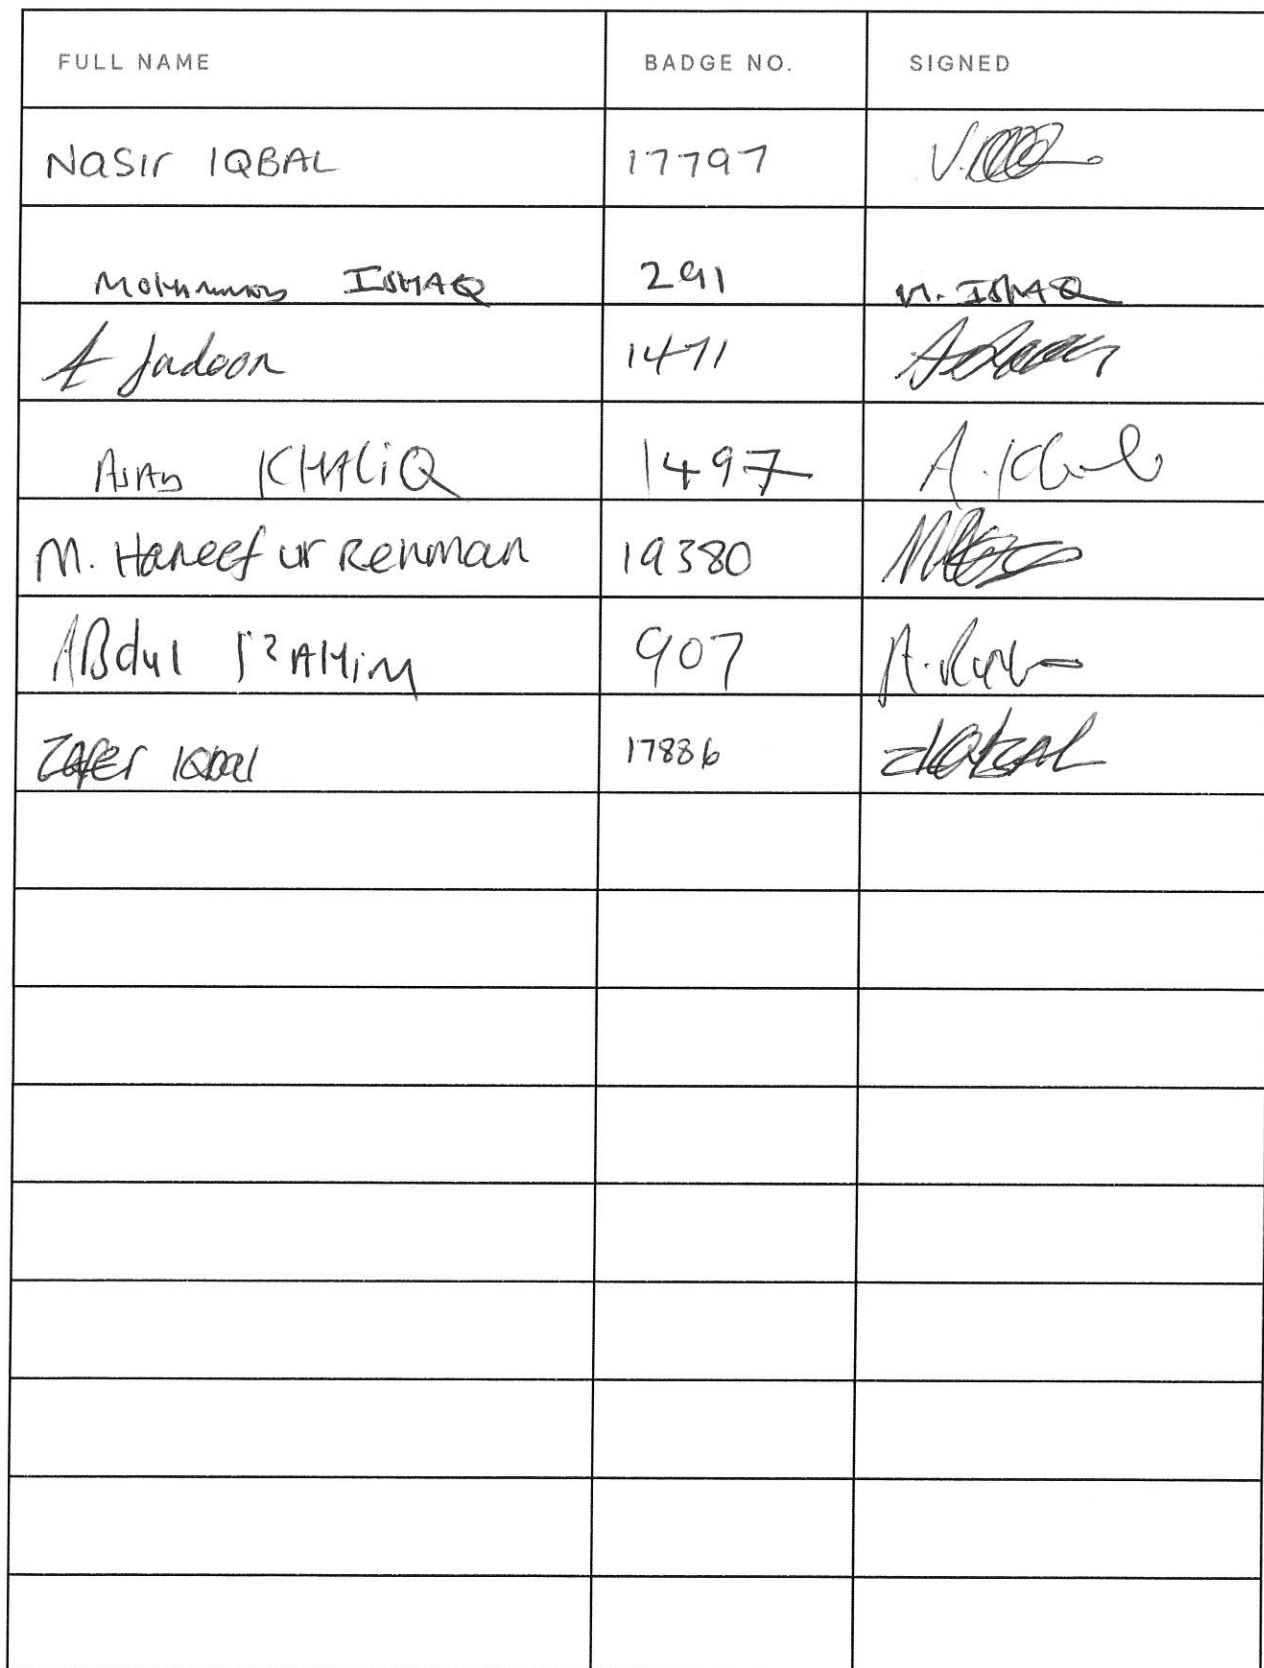 FULL NAME BADGE NO. SIGNED
Nasir IQBAL 17797
ISHAQ 291 M. ISHAQ
A Jadoon 1471
KHALIQ 1497
M. Haneef ur Rehman 19380
ABdul RAHiM 907
Zafer IQbal 17886 ZIQBAL